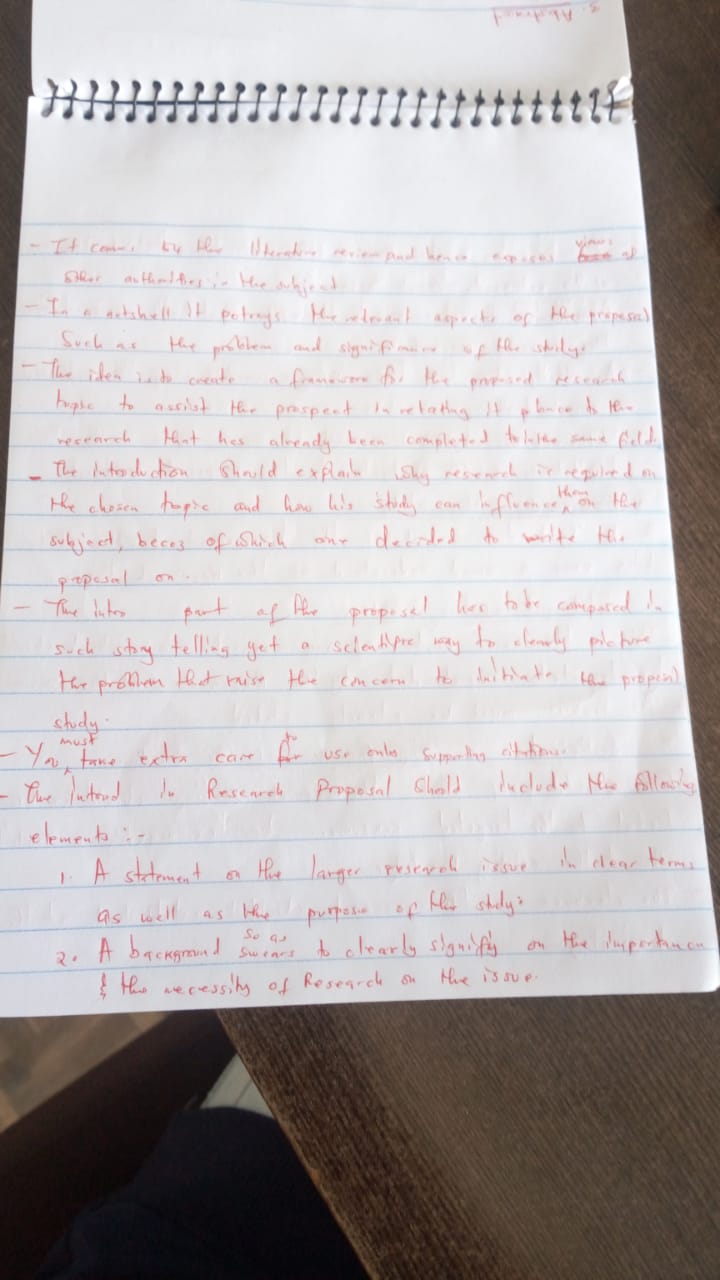 3. Abstract
- It comes by the literature review and hence exposes views of
other authorities in the subject
- In a nutshell it potrays the relevant aspects of the proposal
Such as the problem and significance of the study.
- The idea is to create a framework for the proposed research
topic to assist the prospect in relating it place to the
research that has already been completed in the same field.
- The introduction should explain why research is required on
the chosen topic and how his study can influence them on the
subject, becoz of which one decided to write the
proposal on.
- The intro part of the proposal has to be composed in
such story telling yet a scientific way to clearly picture
the problem that raise the concern to initiate the proposal
study.
- You must take extra care to use only supporting citations.
- The in Research Proposal should include the following
elements :-
1. A statement on the larger research issue in clear terms
as well as the purpose of the study.
2. A background so as to clearly signify on the importance
& the necessity of Research on the issue.